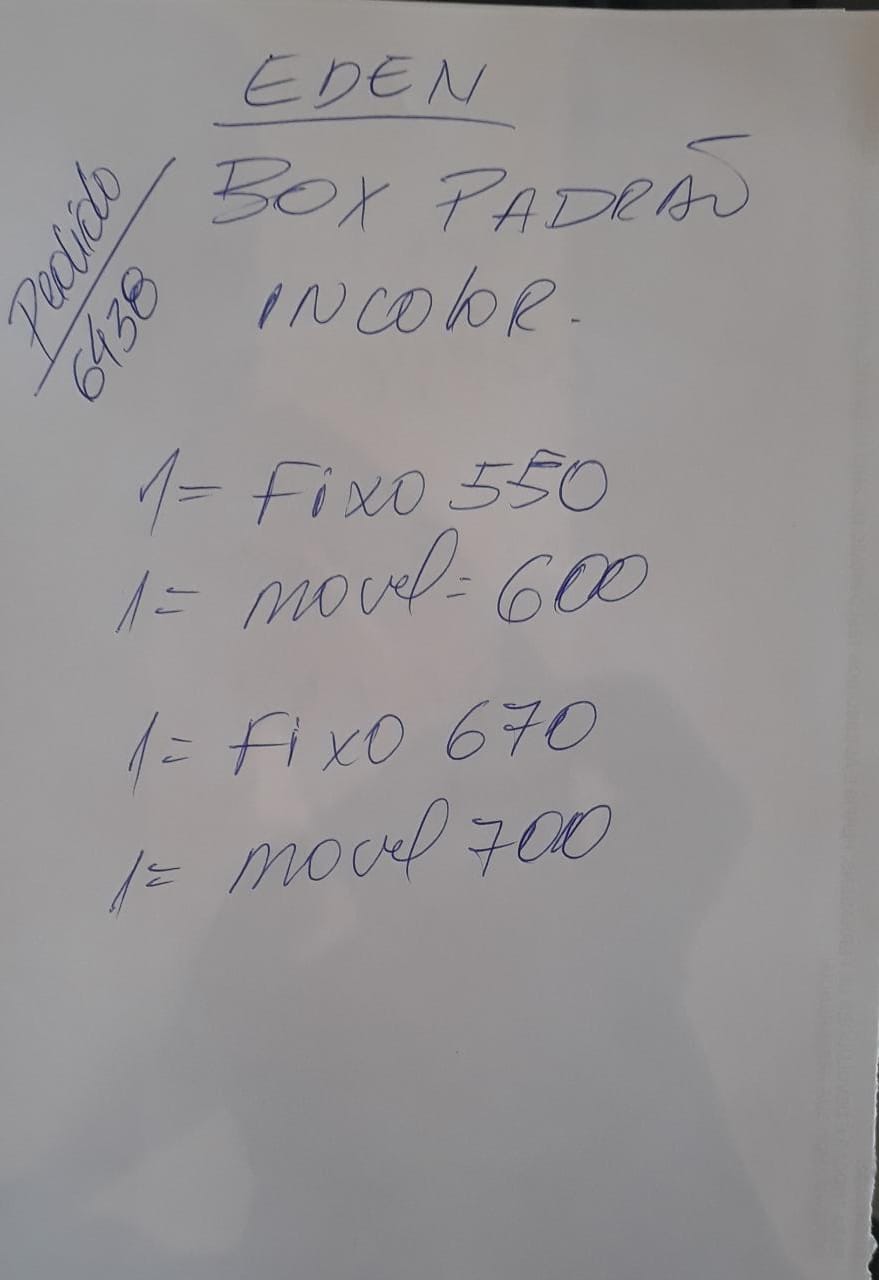 EDEN
BOX PADRÃO
INCOLOR.
Pedido
6438
1= Fixo 550
1= movel= 600
1= Fixo 670
1= movel 700